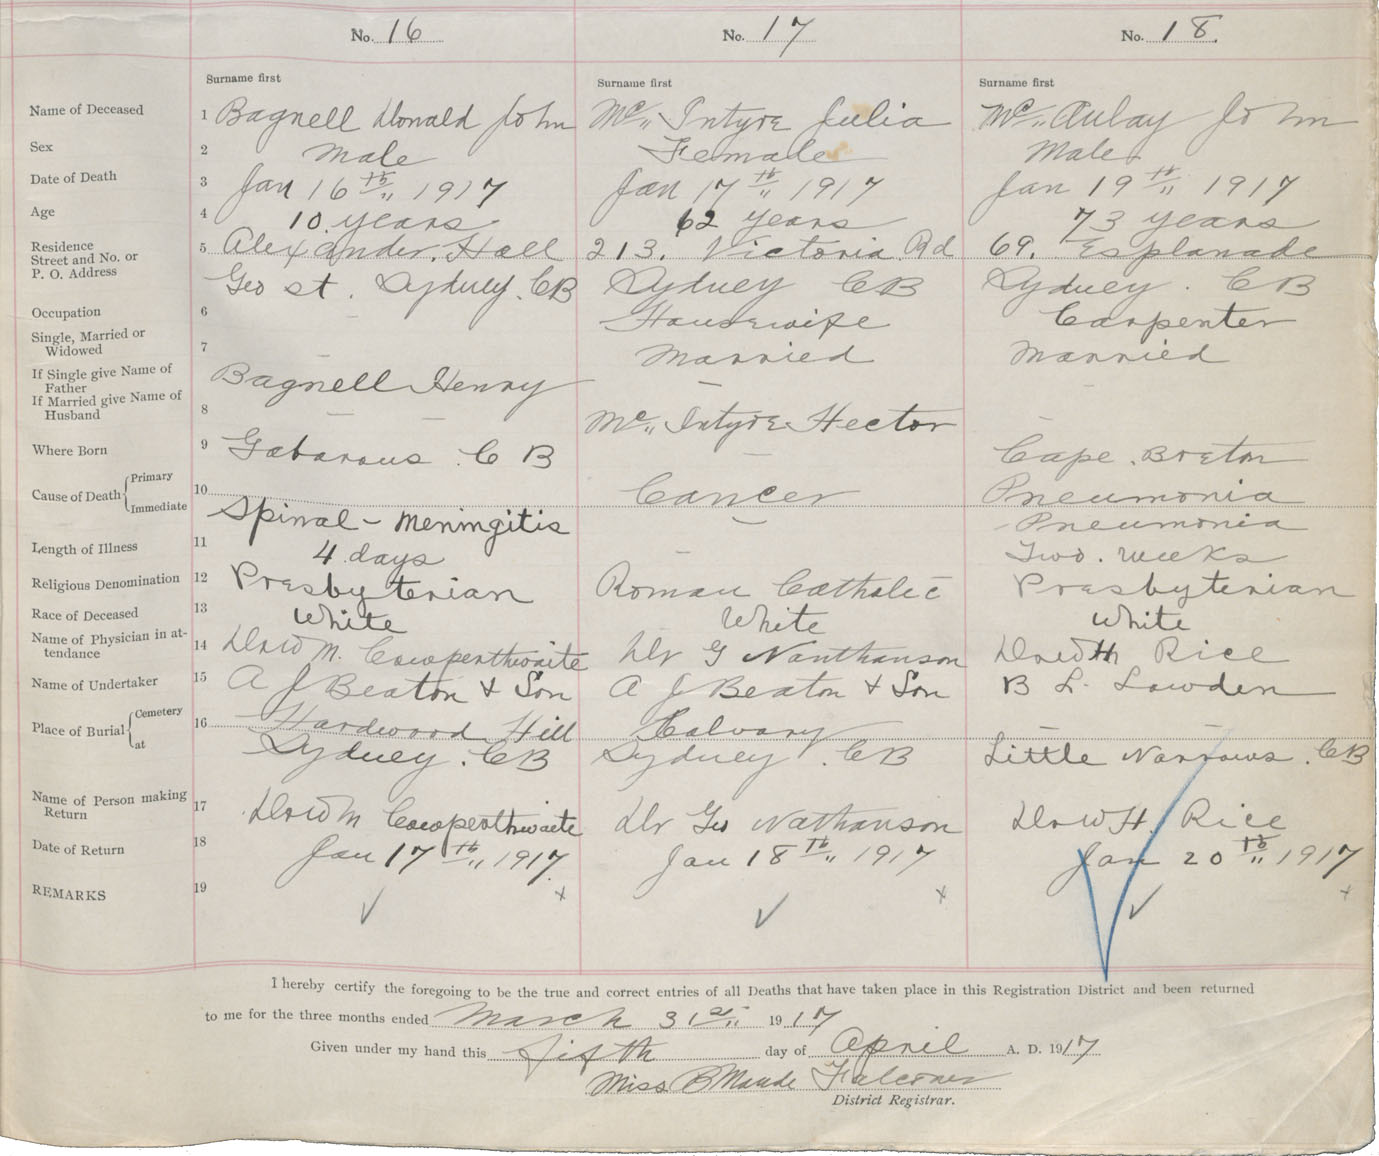 No. 16 No. 17 No. 18.
Surname first Surname first Surname first
Name of Deceased 1 Bagnell Donald John Mc,, Intyre Julia Mc,, Aulay John
Sex 2 Male Female Male
Date of Death 3 Jan 16th,, 1917 Jan 17th,, 1917 Jan 19th,, 1917
Age 4 10. years 62 years 73 years
Residence Street and No. or P. O. Address 5 Alexander. Hall 213. Victoria Rd 69. Esplanade
Geo st. Sydney. CB Sydney CB Sydney. CB
Occupation 6 – Housewife Carpenter
Single, Married or Widowed 7 – Married Married
If Single give Name of Father Bagnell Henry – –
If Married give Name of Husband 8 – – Mc,, Intyre Hector –
Where Born 9 Gabarous. C B – Cape. Breton
Cause of Death Primary 10 Cancer Pneumonia
Immediate Spinal – Meningitis – Pneumonia
Length of Illness 11 4 days – Two. weeks
Religious Denomination 12 Presbyterian Roman Catholic Presbyterian
Race of Deceased 13 White White White
Name of Physician in attendance 14 Dr W M. Cowperthwaite Dr G Nanthanson Dr W H Rice
Name of Undertaker 15 A J Beaton & Son A J Beaton & Son B L. Lowden
Place of Burial Cemetery 16 Hardwood Hill Calvary –
at Sydney. CB Sydney. CB Little Narrows. CB
Name of Person making Return 17 Dr W M Cowperthwaite Dr Geo Nathanson Dr W H. Rice
Date of Return 18 Jan 17th,, 1917. Jan 18th,, 1917 Jan 20th,, 1917
REMARKS 19 ✓ x ✓ x ✓ x
I hereby certify the foregoing to be the true and correct entries of all Deaths that have taken place in this Registration District and been returned
to me for the three months ended March 31st,, 1917
Given under my hand this fifth day of April A. D. 1917
Miss B Maude Falconer
District Registrar.